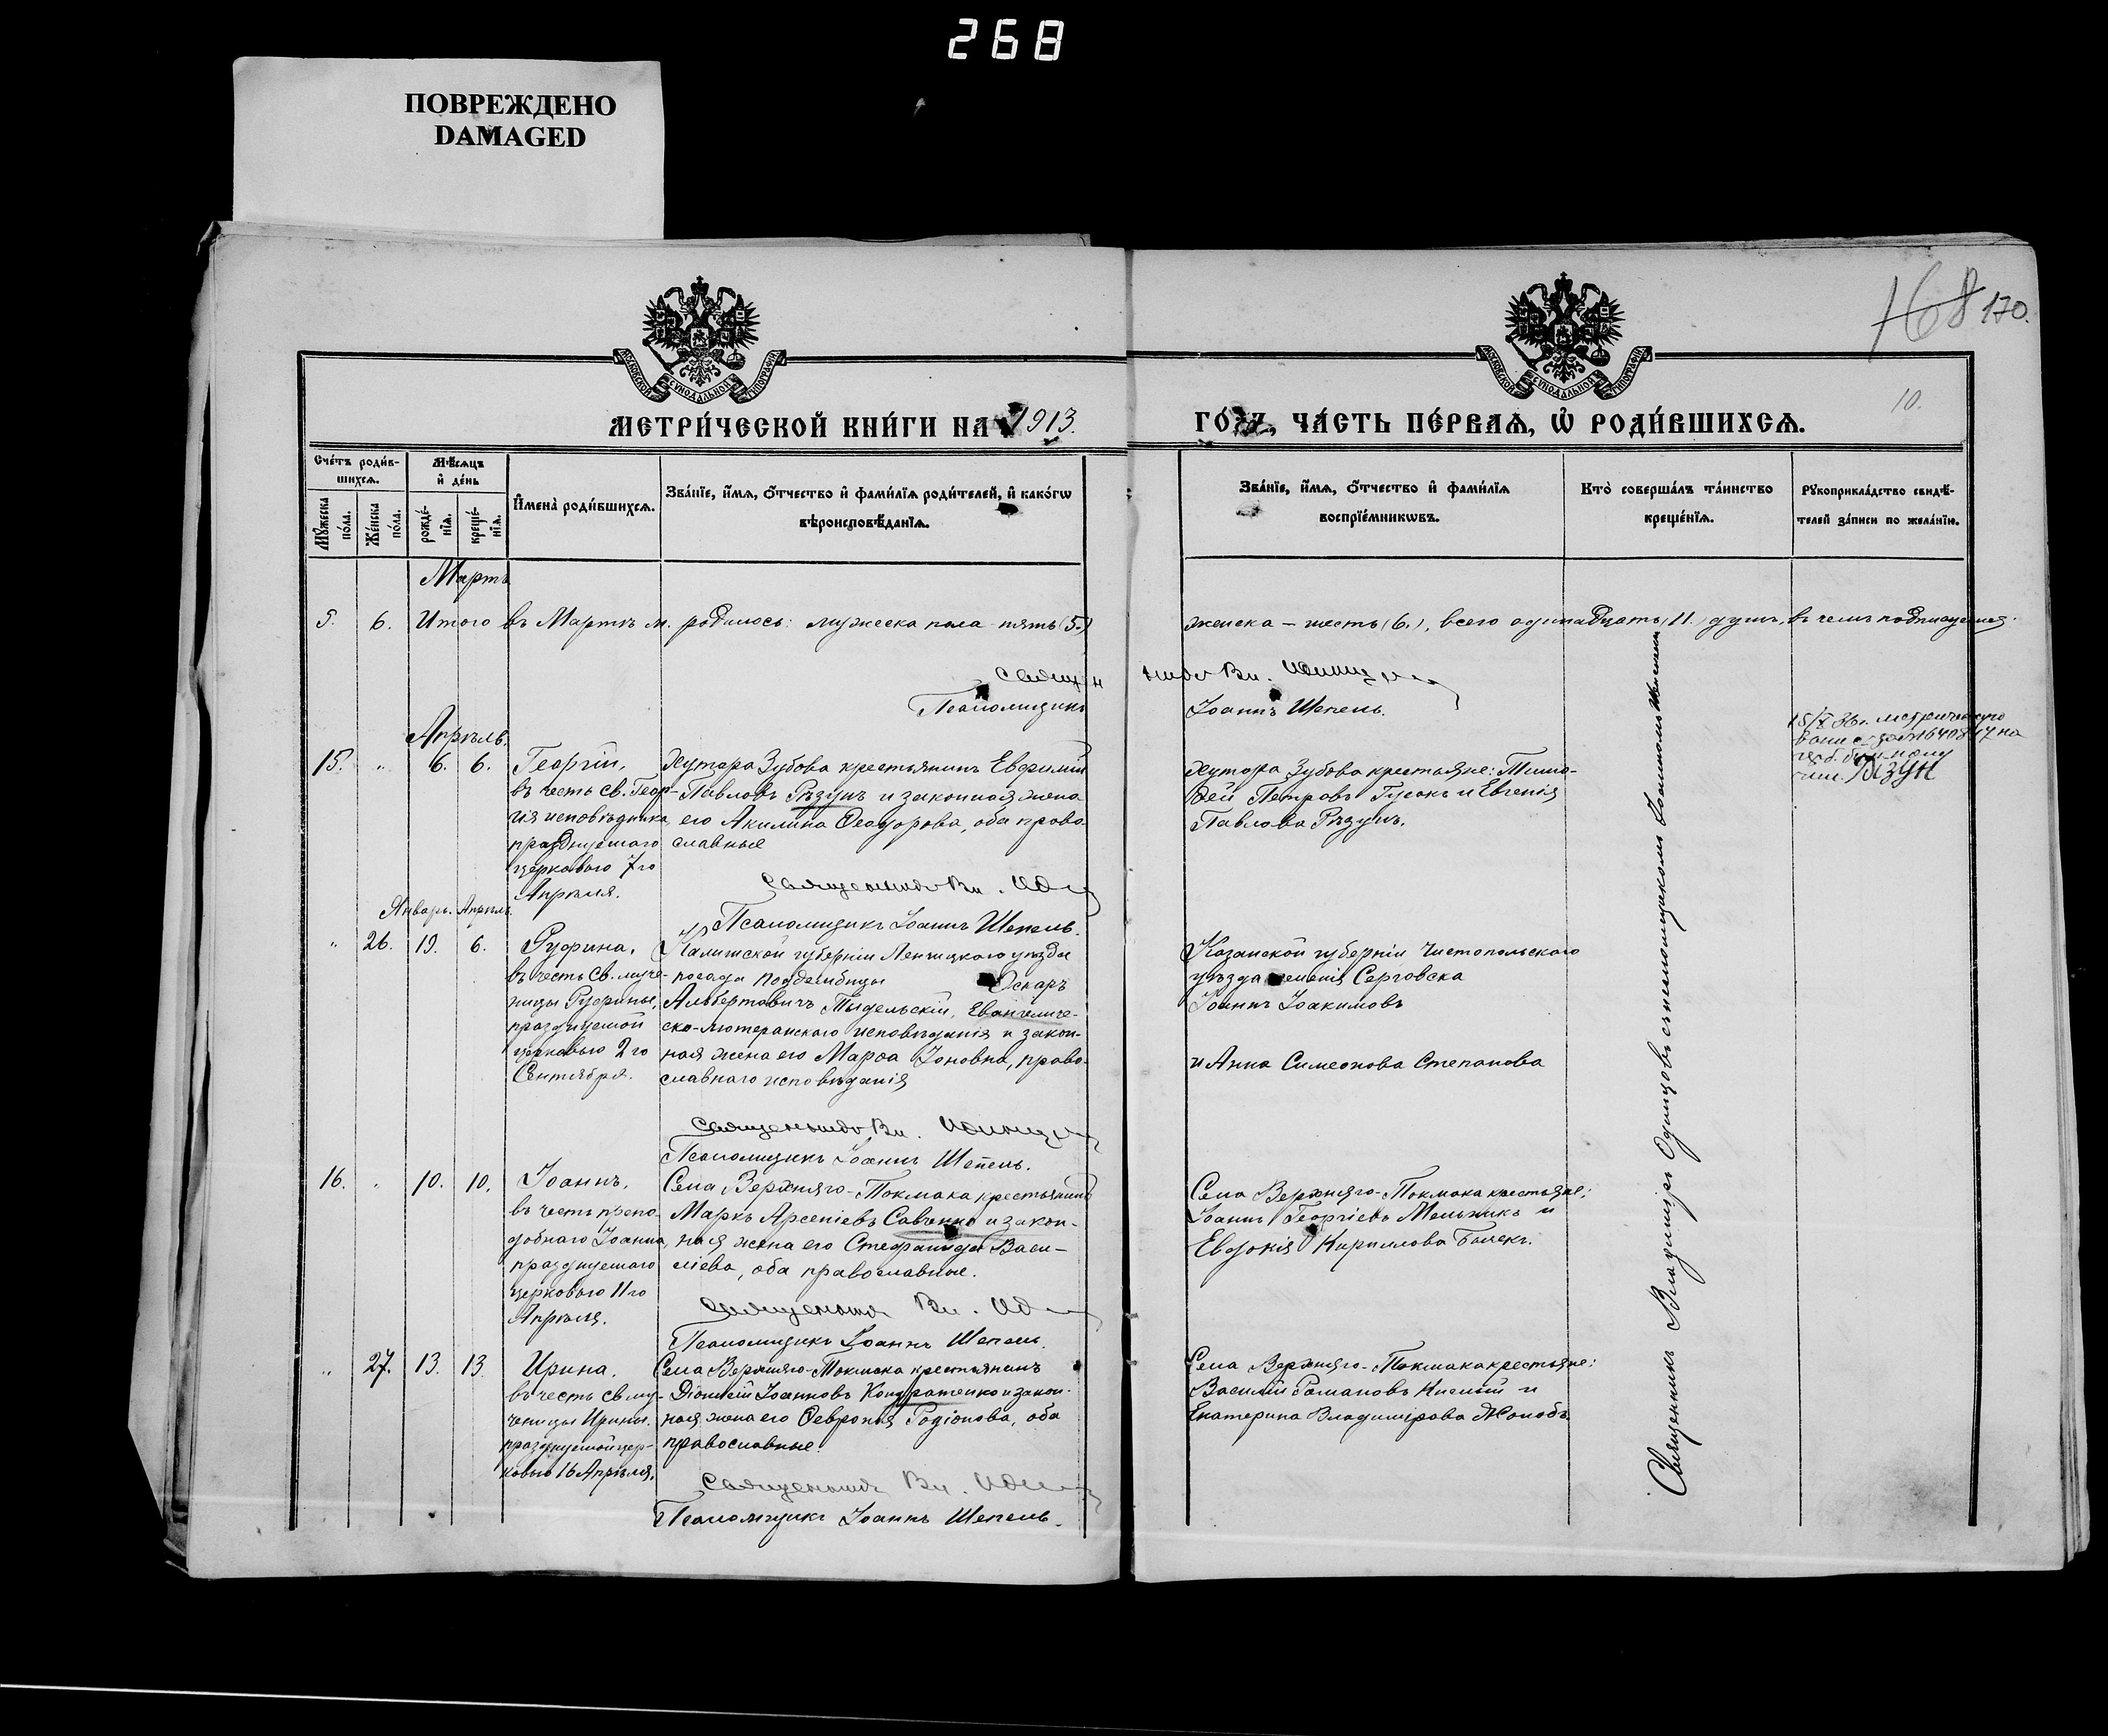 268
ПОВРЕЖДЕНО
DAMAGED
168 170.
10.
МОСКОВСКОЙ СУНОДАЛЬНОЙ ТИПОГРАФІИ
МОСКОВСКОЙ СУНОДАЛЬНОЙ ТИПОГРАФІИ
МЕТРИ́ЧЕСКОЙ КНИ́ГИ НА 1913.
ГО́ДЪ, ЧА́СТЬ ПЕ́РВАѦ, Ѡ҆ РОДИ́ВШИХСѦ.
Сче́тъ роди́в-
шихсѧ.
Мꙋ́жеска
по́ла.
Же́нска
по́ла.
Мѣ́сѧцъ
и҆ де́нь
рожде́-
нїѧ.
креще́-
нїѧ.
И҆мена̀ роди́вшихсѧ.
Зва́нїе, и҆́мѧ, ѻ҆́тчество и҆ фами́лїѧ роди́телей, и҆ како́гѡ
вѣроисповѣ́данїѧ.
Зва́нїе, и҆́мѧ, ѻ҆́тчество и҆ фами́лїѧ
воспрїе́мникѡвъ.
Кто̀ соверша́лъ та́инство
креще́нїѧ.
Рꙋкоприкла́дство свидѣ́-
телей за́писи по жела́нїю.
Мартъ
5. 6. Итого въ Мартѣ м. родилось: мужеска пола - пять (5.)
женска - шесть (6.), всего одинадцать (11.) душъ, въ чемъ подписуемся.
Священникъ Вл. Одинцовъ
Псаломщикъ Іоаннъ Шепель.
Апрѣль.
15. " 6. 6. Георгій,
въ честь св. Геор-
гія исповѣдника,
празднуемаго
церковью 7го
Апрѣля.
Хутора Зубова крестьянинъ Евфимій
Павловъ Рѣзунъ и законная жена
его Акилина Ѳеодорова, оба право-
славные
Священникъ Вл. Од
Псаломщикъ Іоаннъ Шепель.
Хутора Зубова крестьяне: Тимо-
ѳей Петровъ Гусакъ и Евгенія
Павлова Рѣзунъ.
Январь. Апрѣль.
" 26. 19. 6. Руфина,
въ честь св. муче-
ницы Руфины,
празднуемой
церковью 2го
Сентября.
Калишской губерніи Ленчицкого уѣзда
посада Поддембицы Оскаръ
Альбертовичъ Тыдельскій, Евангеличе-
ско-лютеранскаго исповѣданія и закон-
ная жена его Марѳа Іоновна, право-
славнаго исповѣданія
Священникъ Вл. Одинцовъ
Псаломщикъ Іоаннъ Шепель.
Казанской губерніи Чистопольскаго
уѣзда имѣнія Серговска
Іоаннъ Іоакимовъ
и Анна Симеонова Степанова
16. " 10. 10. Іоаннъ,
въ честь препо-
добнаго Іоанна,
празднуемаго
церковью 11го
Апрѣля.
Села Верхняго-Токмака крестьянинъ
Маркъ Арсеніевъ Савченко и закон-
ная жена его Стефанида Васи-
ліева, оба православные.
Священникъ Вл. Од
Псаломщикъ Іоаннъ Шепель.
Села Верхняго-Токмака крестьяне:
Іоаннъ Георгіевъ Мельникъ и
Евдокія Кириллова Балекъ.
" 27. 13. 13 Ирина,
въ честь св. му-
ченицы Ирины,
празднуемой цер-
ковью 16 Апрѣля.
Села Верхняго-Токмака крестьянинъ
Діонисій Іоанновъ Кондратенко и закон-
ная жена его Ѳевронія Родіонова, оба
православные.
Священникъ Вл. Од
Псаломщикъ Іоаннъ Шепель.
Села Верхняго-Токмака крестьяне:
Василій Романовъ Кислый и
Екатерина Владимірова Жолобъ
Священникъ Владиміръ Одинцовъ съ псаломщикомъ Іоанномъ Шепелемъ